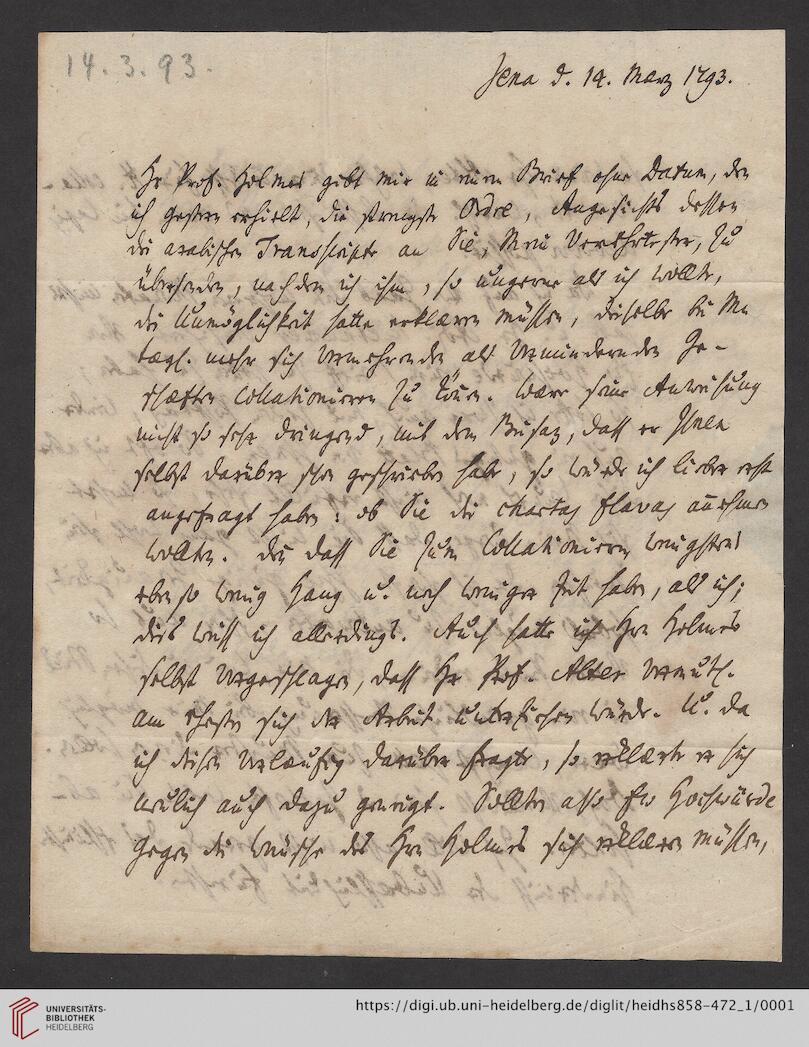 14. 3. 93.
Jena d. 14. März 1793.
Hr Prof. Holmes gibt mir in einem Brief ohne Datum, den
ich gestern erhielt, die strengste Ordre, Angesichts dessen
die arabischen Transscripte an Sie, Mein Verehrtester, zu
übersenden, nachdem ich ihm, so ungerne als ich wollte,
die Unmöglichkeit hatte erklären müssen, dieselbe bei
tägl. mehr sich vermehrenden als vermindernden Ge-
schäften collationieren zu können. Wäre seine Anweisung
nicht so sehr dringend, mit dem Beisaz, dass er Ihnen
selbst darüber schon geschrieben habe, so würde ich lieber erst
angefragt haben: ob Sie die chartas flavas annehmen
wollten. Den dass Sie zum Collationieren wenigstens
eben so wenig Hang u. noch weniger Zeit haben, als ich;
dies weiss ich allerdings. Auch hatte ich Hrn Holmes
selbst vorgeschlagen, dass Hr Prof. Alter vermutl.
am ehesten sich der Arbeit unterziehen würde. U. da
ich diesen vorläufig darüber fragte, so erklärte er sich
neulich auch dazu geneigt. Sollten also Ew Hochwürde
gegen die Wünsche des Hrn Holmes sich erklären müssen,
UNIVERSITÄTS-
BIBLIOTHEK
HEIDELBERG
https://digi.ub.uni-heidelberg.de/diglit/heidhs858-472_1/0001